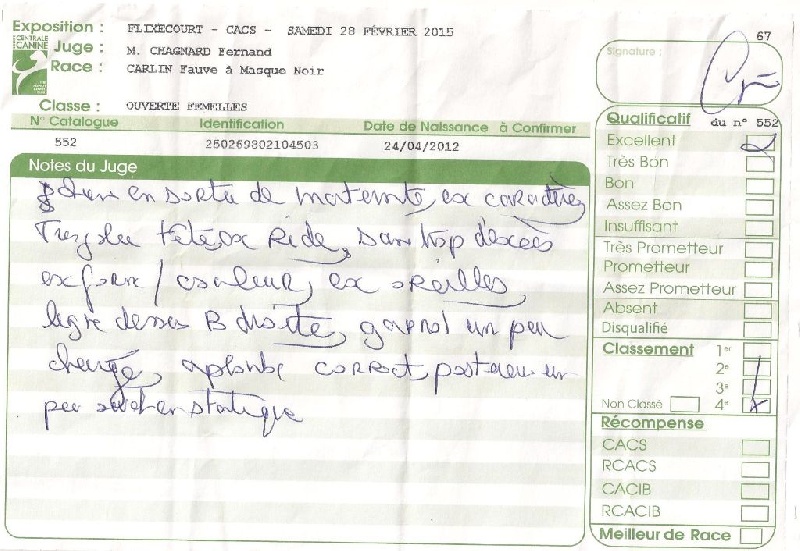 Exposition : FLIXECOURT - CACS - SAMEDI 28 FÉVRIER 2015
CENTRALE CANINE
Juge : M. CHAGNARD Fernand
Race : CARLIN Fauve à Masque Noir
Classe : OUVERTE FEMELLES
N° Catalogue Identification Date de Naissance à Confirmer
552 250269802104503 24/04/2012
Notes du Juge
en sortie de maternité, ex caractère
tête ex Ride, sans trop d'excès
ex forme / couleur, ex oreilles,
ligne dessus B droite, garrot un peu
chargé, aplombs correct, un
peu en statique
67
Signature :
Qualificatif du n° 552
Excellent
Très Bon
Bon
Assez Bon
Insuffisant
Très Prometteur
Prometteur
Assez Prometteur
Absent
Disqualifié
Classement 1er
2e
3e
Non Classé 4e
Récompense
CACS
RCACS
CACIB
RCACIB
Meilleur de Race